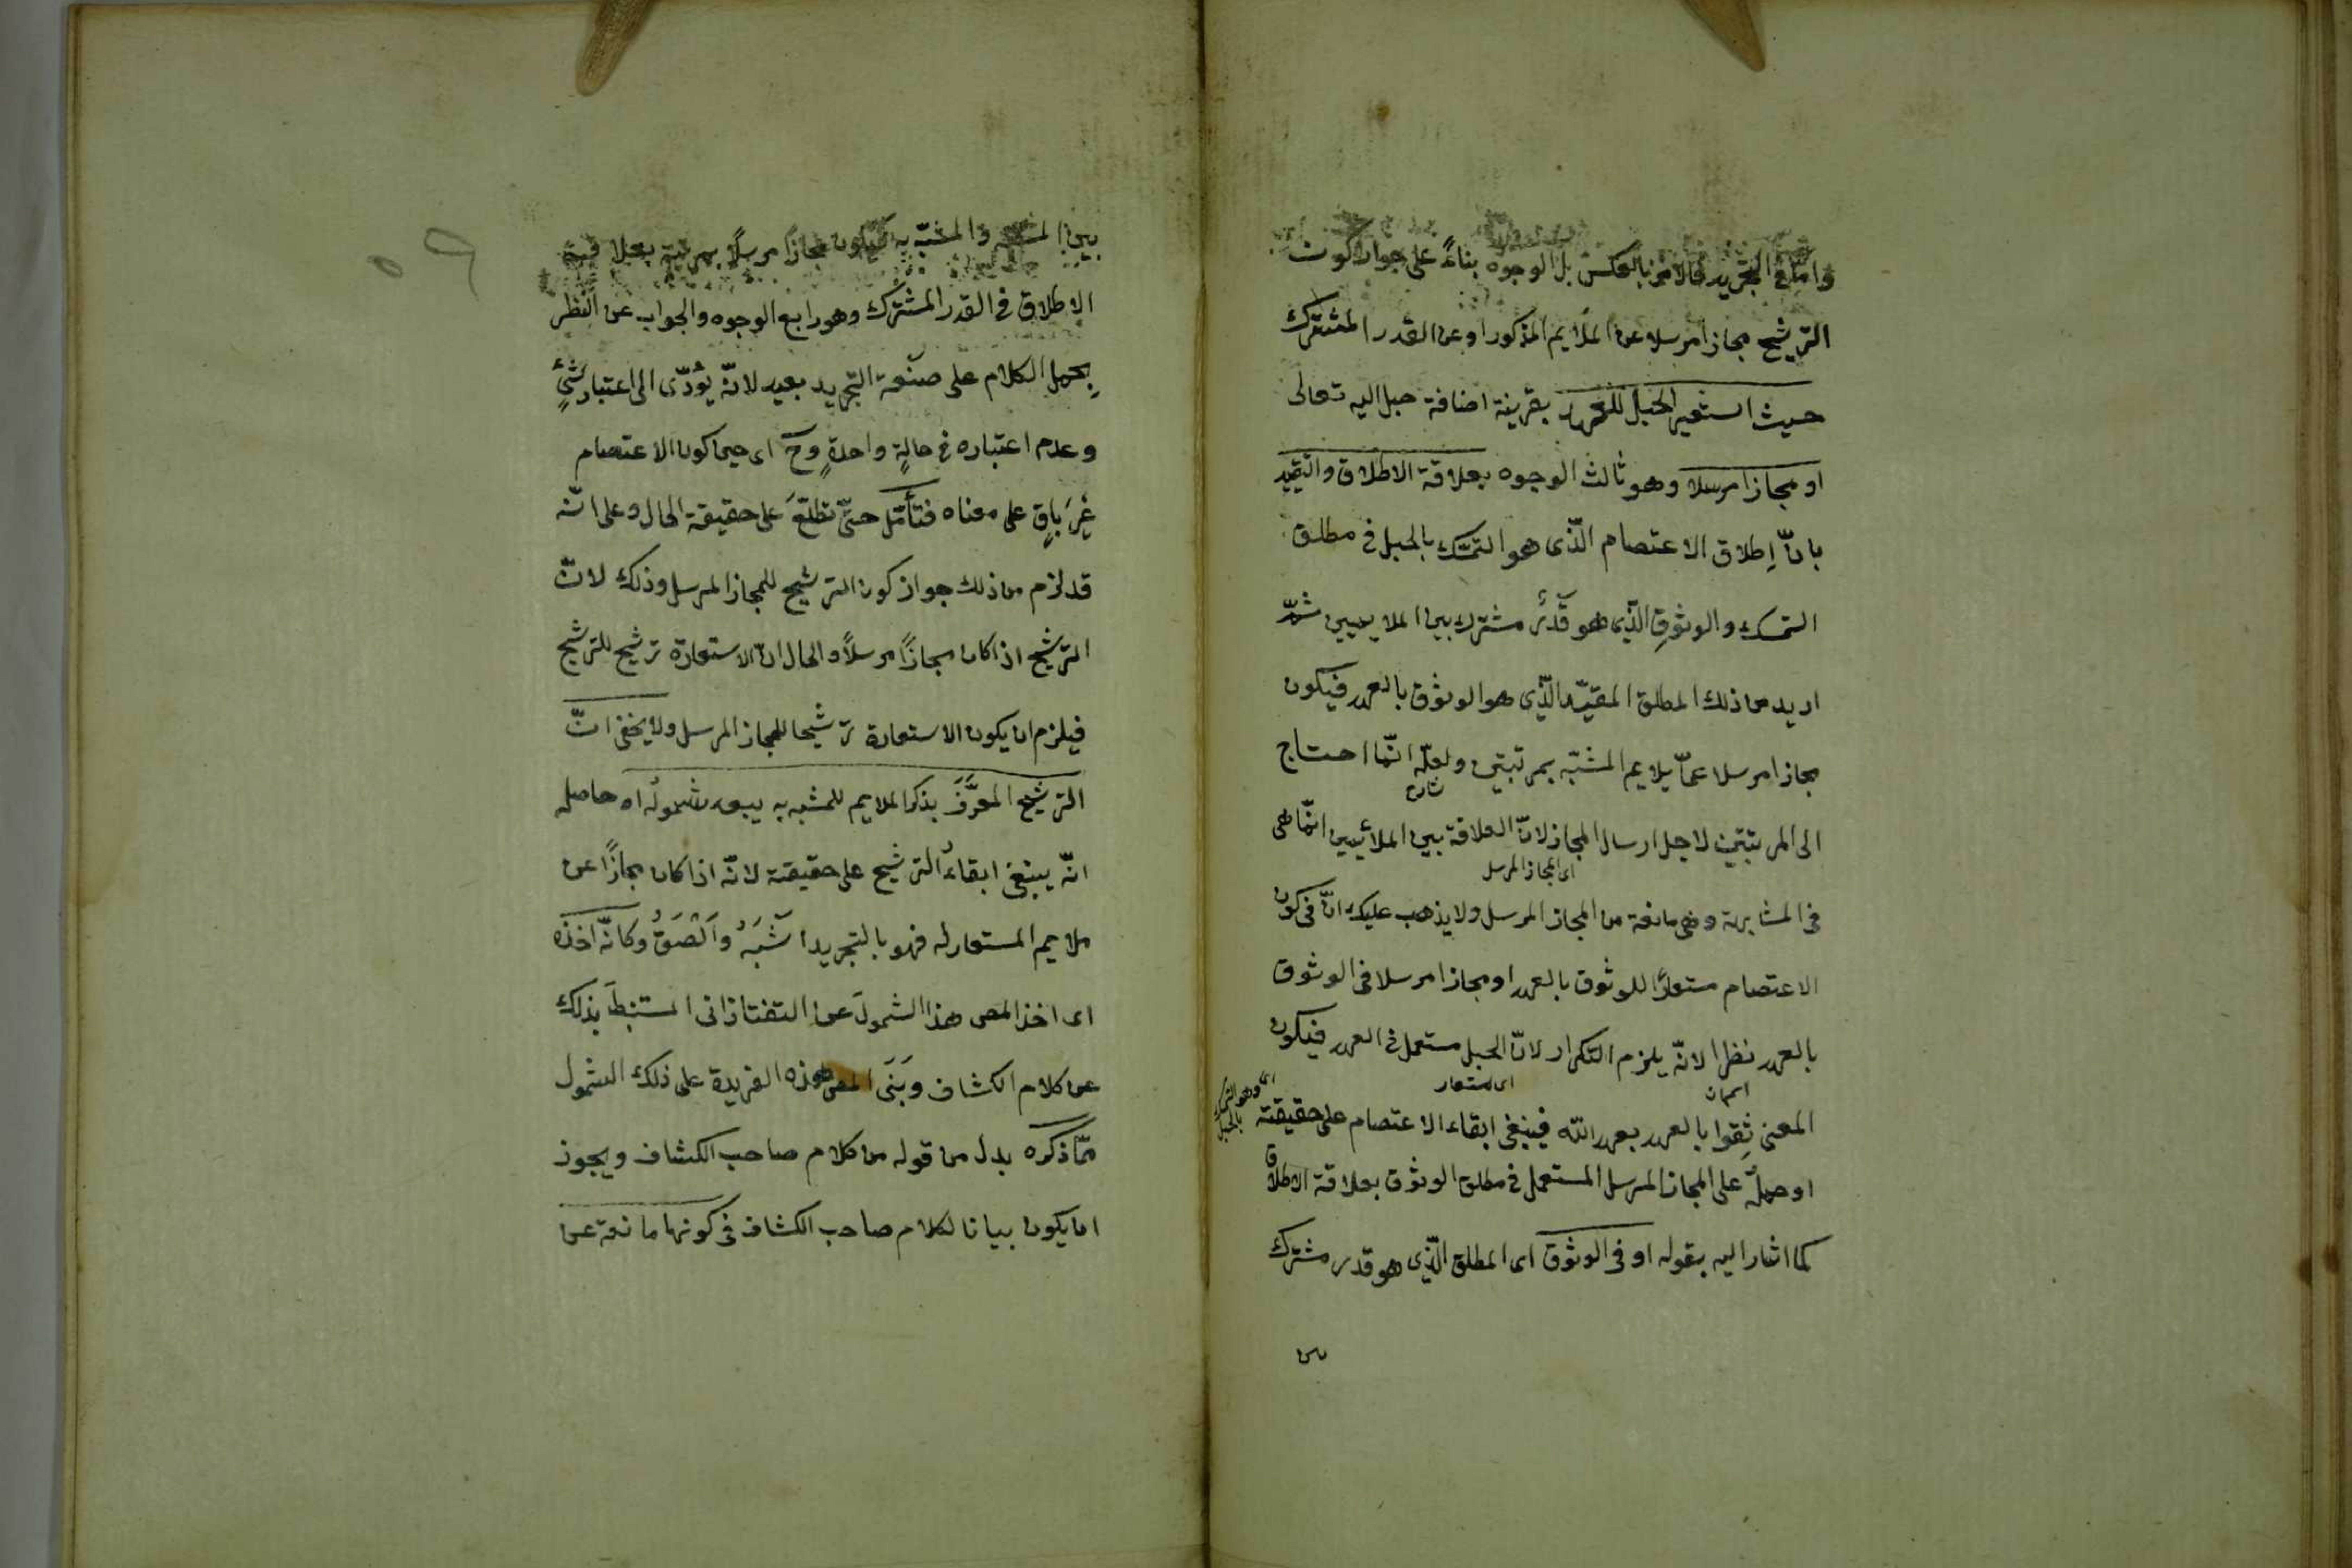 وامّا فى التجريد فالامر بالعكس بل الوجوه بناءً على جواز كون
الترشيح مجازا مرسلا عن الملايم المذكور او عن القدر المشترك
حيث استعير الحبل للعهد بقرينة اضافة حبل اليه تعالى
او مجازا مرسلا وهو ثالث الوجوه بعلاقة الاطلاق والتقييد
بانّ إطلاق الاعتصام الّذى هو التمسّك بالحبل فى مطلق
التمسك والوثوق الّذى هو قَدْرٌ مشترك بين الملايمين ثمّ
اريد من ذلك المطلق المقيّد الّذى هو الوثوق بالعهد فيكون
مجازا مرسلا عمّا يلايم المشبّه بمرتبتين ولعلّه انّما احتاج
شارح
الى المرتبتين لاجل ارسال المجاز لانّ العلاقة بين الملائمين انّما هى
اى المجاز المرسل
فى المشابهة وهى مانعة من المجاز المرسل ولا يذهب عليك انّ فى كون
الاعتصام مستعارًا للوثوق بالعهد او مجازا مرسلا فى الوثوق
بالعهد نظرا لانّه يلزم التكرار لانّ الحبل مستعمل فى العهد فيكون
اى مستعار
المعنى ثِقوا بالعهد بعهد اللّه فينبغى ابقاء الاعتصام على حقيقته
اى وهو التمسك بالحبل
او حمله على المجاز المرسل المستعمل فى مطلق الوثوق بعلاقة الاطلاق
كما اشار اليه بقوله او فى الوثوق اى المطلق الّذى هو قدر مشترك
٥٩
بين المشبه والمشبّه به فيكون مجازا مرسلًا بمرتبة بعلاقة
الاطلاق فى القدر المشترك وهو رابع الوجوه والجواب عن النظر
بحمل الكلام على صنعة التجريد بعيد لانّه يُؤدّى الى اعتبار شئٍ
وعدم اعتباره فى حالةٍ واحدةٍ وح اى حين كون الاعتصام
غيرَ باقٍ على معناه فتأمّل حتّى تطّلعَ على حقيقة الحال وعلى انّه
قد لزم من ذلك جواز كون الترشيح للمجاز المرسل وذلك لانّ
الترشيح اذا كان مجازًا مرسلًا والحال انّ الاستعارة ترشيح للترشيح
فيلزم ان يكون الاستعارة ترشيحا للمجاز المرسل ولا يخفى انّ
الترشيح المعرَّفَ بذكر الملايم للمشبه به يبعد شموله اه حاصله
انّه ينبغى ابقاءُ الترشيح على حقيقته لانّه اذا كان مجازًا عن
ملايم المستعار له فهو بالتجريد اَشْبَهُ واَلْصَقُ وكانّه اخذه
اى اخذ المص هذا الشمولَ عن التفتازانى المستنبطَ بذلك
عن كلام الكشاف وبَنَى المص هذه الفريدة على ذلك الشمول
ممّا ذكره بدل من قوله من كلام صاحب الكشاف ويجوز
ان يكون بيانا لكلام صاحب الكشاف فى كونها مانعة عن